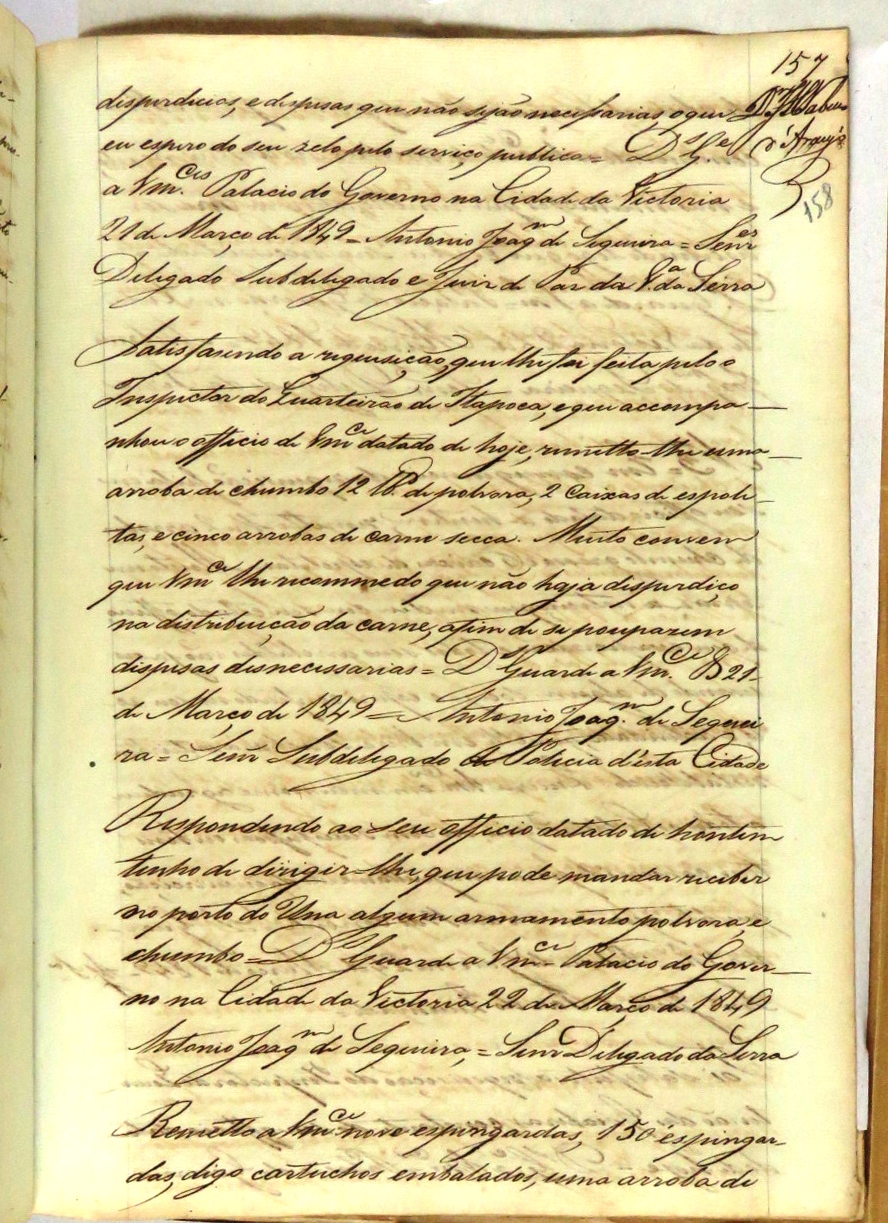 157
158
disperdicios, e dispesas que não sejão necessarias, o que
eu espero do seu zelo pelo serviço publico = Ds. Ge.
a Vmces. Palacio do Governo na Cidade da Victoria
21 de Março de 1849 = Antonio Joaqm de Siqueira = Senres
Delegado Subdelegado e Juiz de Paz da Va. da Serra
Satisfasendo a riquisição, que lhe foi feita pelo o
Inspector do Quarteirão de Itapoca, e que accompa-
nhou o officio de Vmce datado de hoje, rimetto-lhe uma
arroba de chumbo 12 lb. de polvora, 2 Caixas de espole-
tas, e cinco arrobas de carne secca. Muito convem
que Vmce lhe ricommedo que não haja disperdiço
na distribuição da carne, afim de se pouparem
dispesas disnecessarias = Ds Guarde a Vmce. 21
de Março de 1849 = Antonio Joaqm. de Siquei
ra = Senr Subdelegado de Policia d'esta Cidade
Respondendo ao seu officio datado de hontem
tenho de dirigir-lhe, que pode mandar receber
no porto do Una algum armamento polvora, e
chumbo = Ds Guarde a Vmce = Palacio do Gover-
no na Cidade da Victoria 22 de Março de 1849
Antonio Joaqm de Siqueira, = Senr Delegado da Serra
Remetto a Vmce nove espingardas, 150 espingar-
das, digo cartuchos embalados, uma arroba de